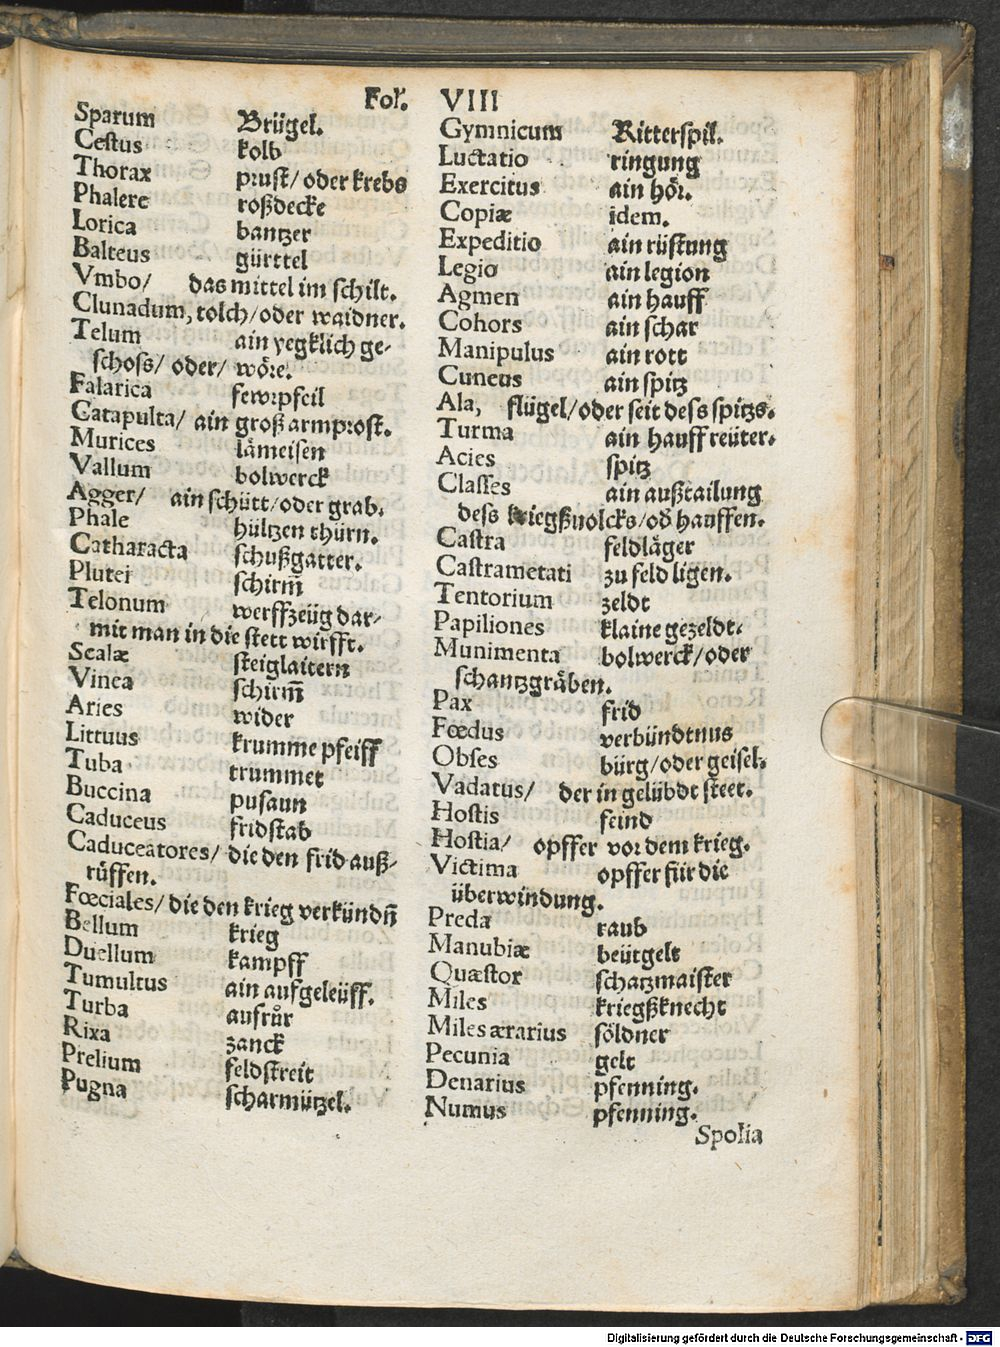 Fol. VIII
Sparum Brügel.
Cestus kolb
Thorax prust/ oder krebs
Phalere roßdecke
Lorica bantzer
Balteus gürttel
Vmbo/ das mittel im schilt.
Clunadum, tolch/oder waidner.
Telum ain yegklich ge-
schoss/ oder/ wöre.
Falarica fewrpfeil
Catapulta/ ain groß armprost.
Murices lämeisen
Vallum bolwerck
Agger/ ain schütt/oder grab.
Phale hültzen thürn.
Catharacta schußgatter.
Plutei schirm̄
Telonum werffzeüg dar-
mit man in die stett wirfft.
Scalæ steiglaitern
Vinea schirm̄
Aries wider
Littuus krumme pfeiff
Tuba trummet
Buccina pusaun
Caduceus fridstab
Caduceatores/ die den frid auß-
rüffen.
Fœciales/ die den krieg verkündn̄
Bellum krieg
Duellum kampff
Tumultus ain aufgeleüff.
Turba aufrůr
Rixa zanck
Prelium feldstreit
Pugna scharmützel.
Gymnicum Ritterspil.
Luctatio ringung
Exercitus ain hör.
Copiæ idem.
Expeditio ain rüstung
Legio ain legion
Agmen ain hauff
Cohors ain schar
Manipulus ain rott
Cuneus ain spitz
Ala, flügel/oder seit dess spitzs.
Turma ain hauff reüter.
Acies spitz
Classes ain außtailung
dess kriegßuolcks/od̄ hauffen.
Castra feldläger
Castrametati zu feld ligen.
Tentorium zeldt
Papiliones klaine gezeldt.
Munimenta bolwerck/oder
schantzgräben.
Pax frid
Fœdus verbündtnus
Obses bürg/oder geisel.
Vadatus/ der in gelübdt steet.
Hostis feind
Hostia/ opffer vor dem krieg.
Victima opffer für die
überwindung.
Preda raub
Manubiæ beütgelt
Quæstor schatzmaister
Miles kriegßknecht
Miles ærarius söldner
Pecunia gelt
Denarius pfenning.
Numus pfenning.
Spolia
Digitalisierung gefördert durch die Deutsche Forschungsgemeinschaft - DFG